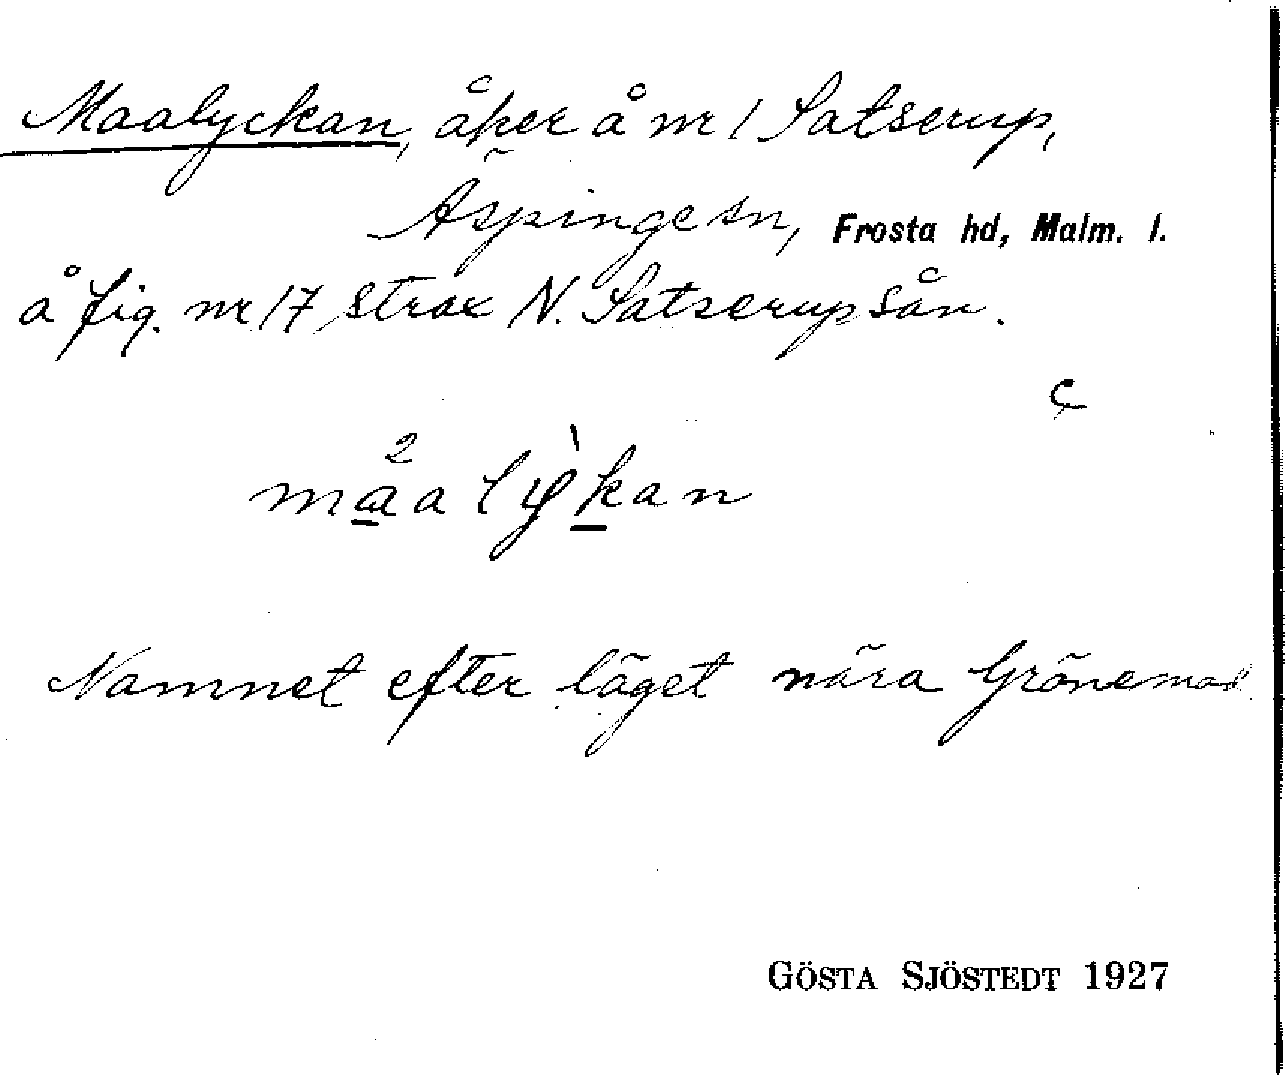 Maalyckan, åker å nr 1 Satserup,
Äspinge sn, Frosta hd, Malm. l.
å fig. nr 17, strax N. Satserupsån.
maalykan
Namnet efter läget nära Grönemad
GÖSTA SJÖSTEDT 1927